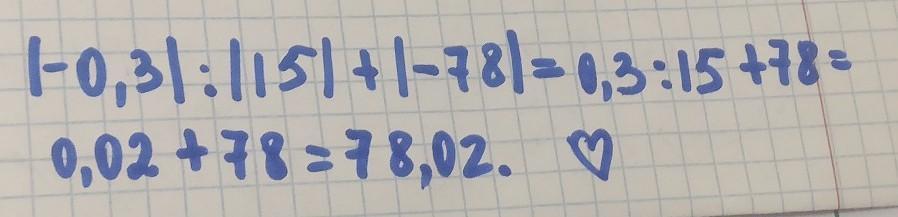 |-0,3|:|15|+|-78|=0,3:15+78=
0,02+78=78,02. ♡